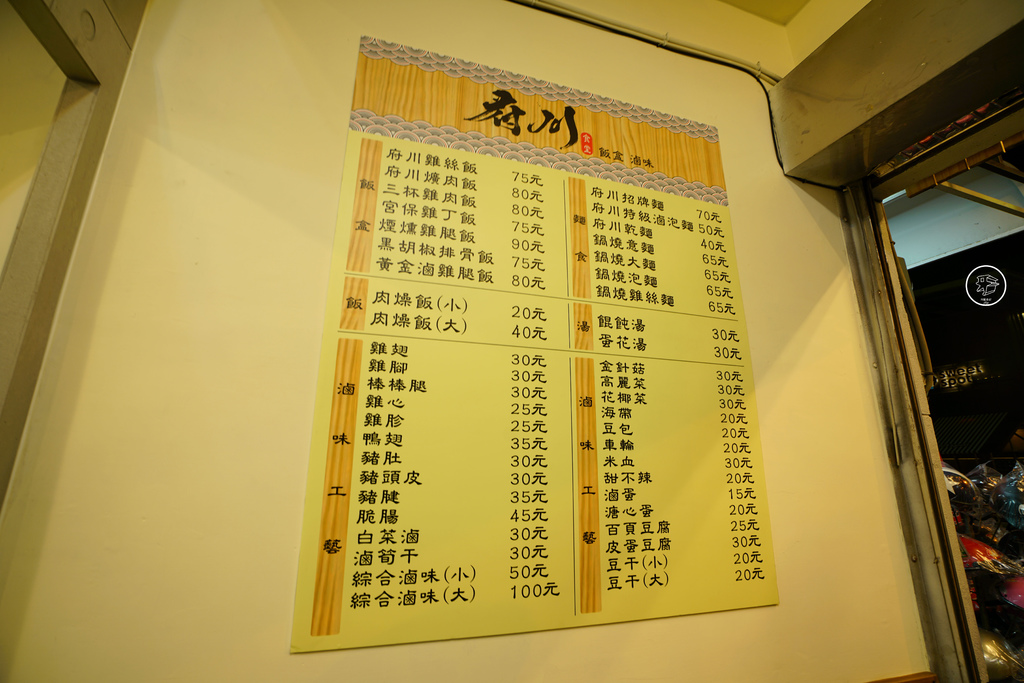 府川 食堂 飯盒 滷味
飯盒
府川雞絲飯 75元
府川爌肉飯 80元
三杯雞肉飯 80元
宮保雞丁飯 75元
煙燻雞腿飯 90元
黑胡椒排骨飯 75元
黃金滷雞腿飯 80元
飯
肉燥飯(小) 20元
肉燥飯(大) 40元
滷味工藝
雞翅 30元
雞腳 30元
棒棒腿 30元
雞心 25元
雞胗 25元
鴨翅 35元
豬肚 30元
豬頭皮 30元
豬腱 35元
脆腸 45元
白菜滷 30元
滷筍干 30元
綜合滷味(小) 50元
綜合滷味(大) 100元
麵食
府川招牌麵 70元
府川特級滷泡麵 50元
府川乾麵 40元
鍋燒意麵 65元
鍋燒大麵 65元
鍋燒泡麵 65元
鍋燒雞絲麵 65元
湯
餛飩湯 30元
蛋花湯 30元
滷味工藝
金針菇 30元
高麗菜 30元
花椰菜 30元
海帶 20元
豆包 20元
車輪 20元
米血 30元
甜不辣 20元
滷蛋 15元
溏心蛋 20元
百頁豆腐 25元
皮蛋豆腐 30元
豆干(小) 20元
豆干(大) 20元
sweet
spot